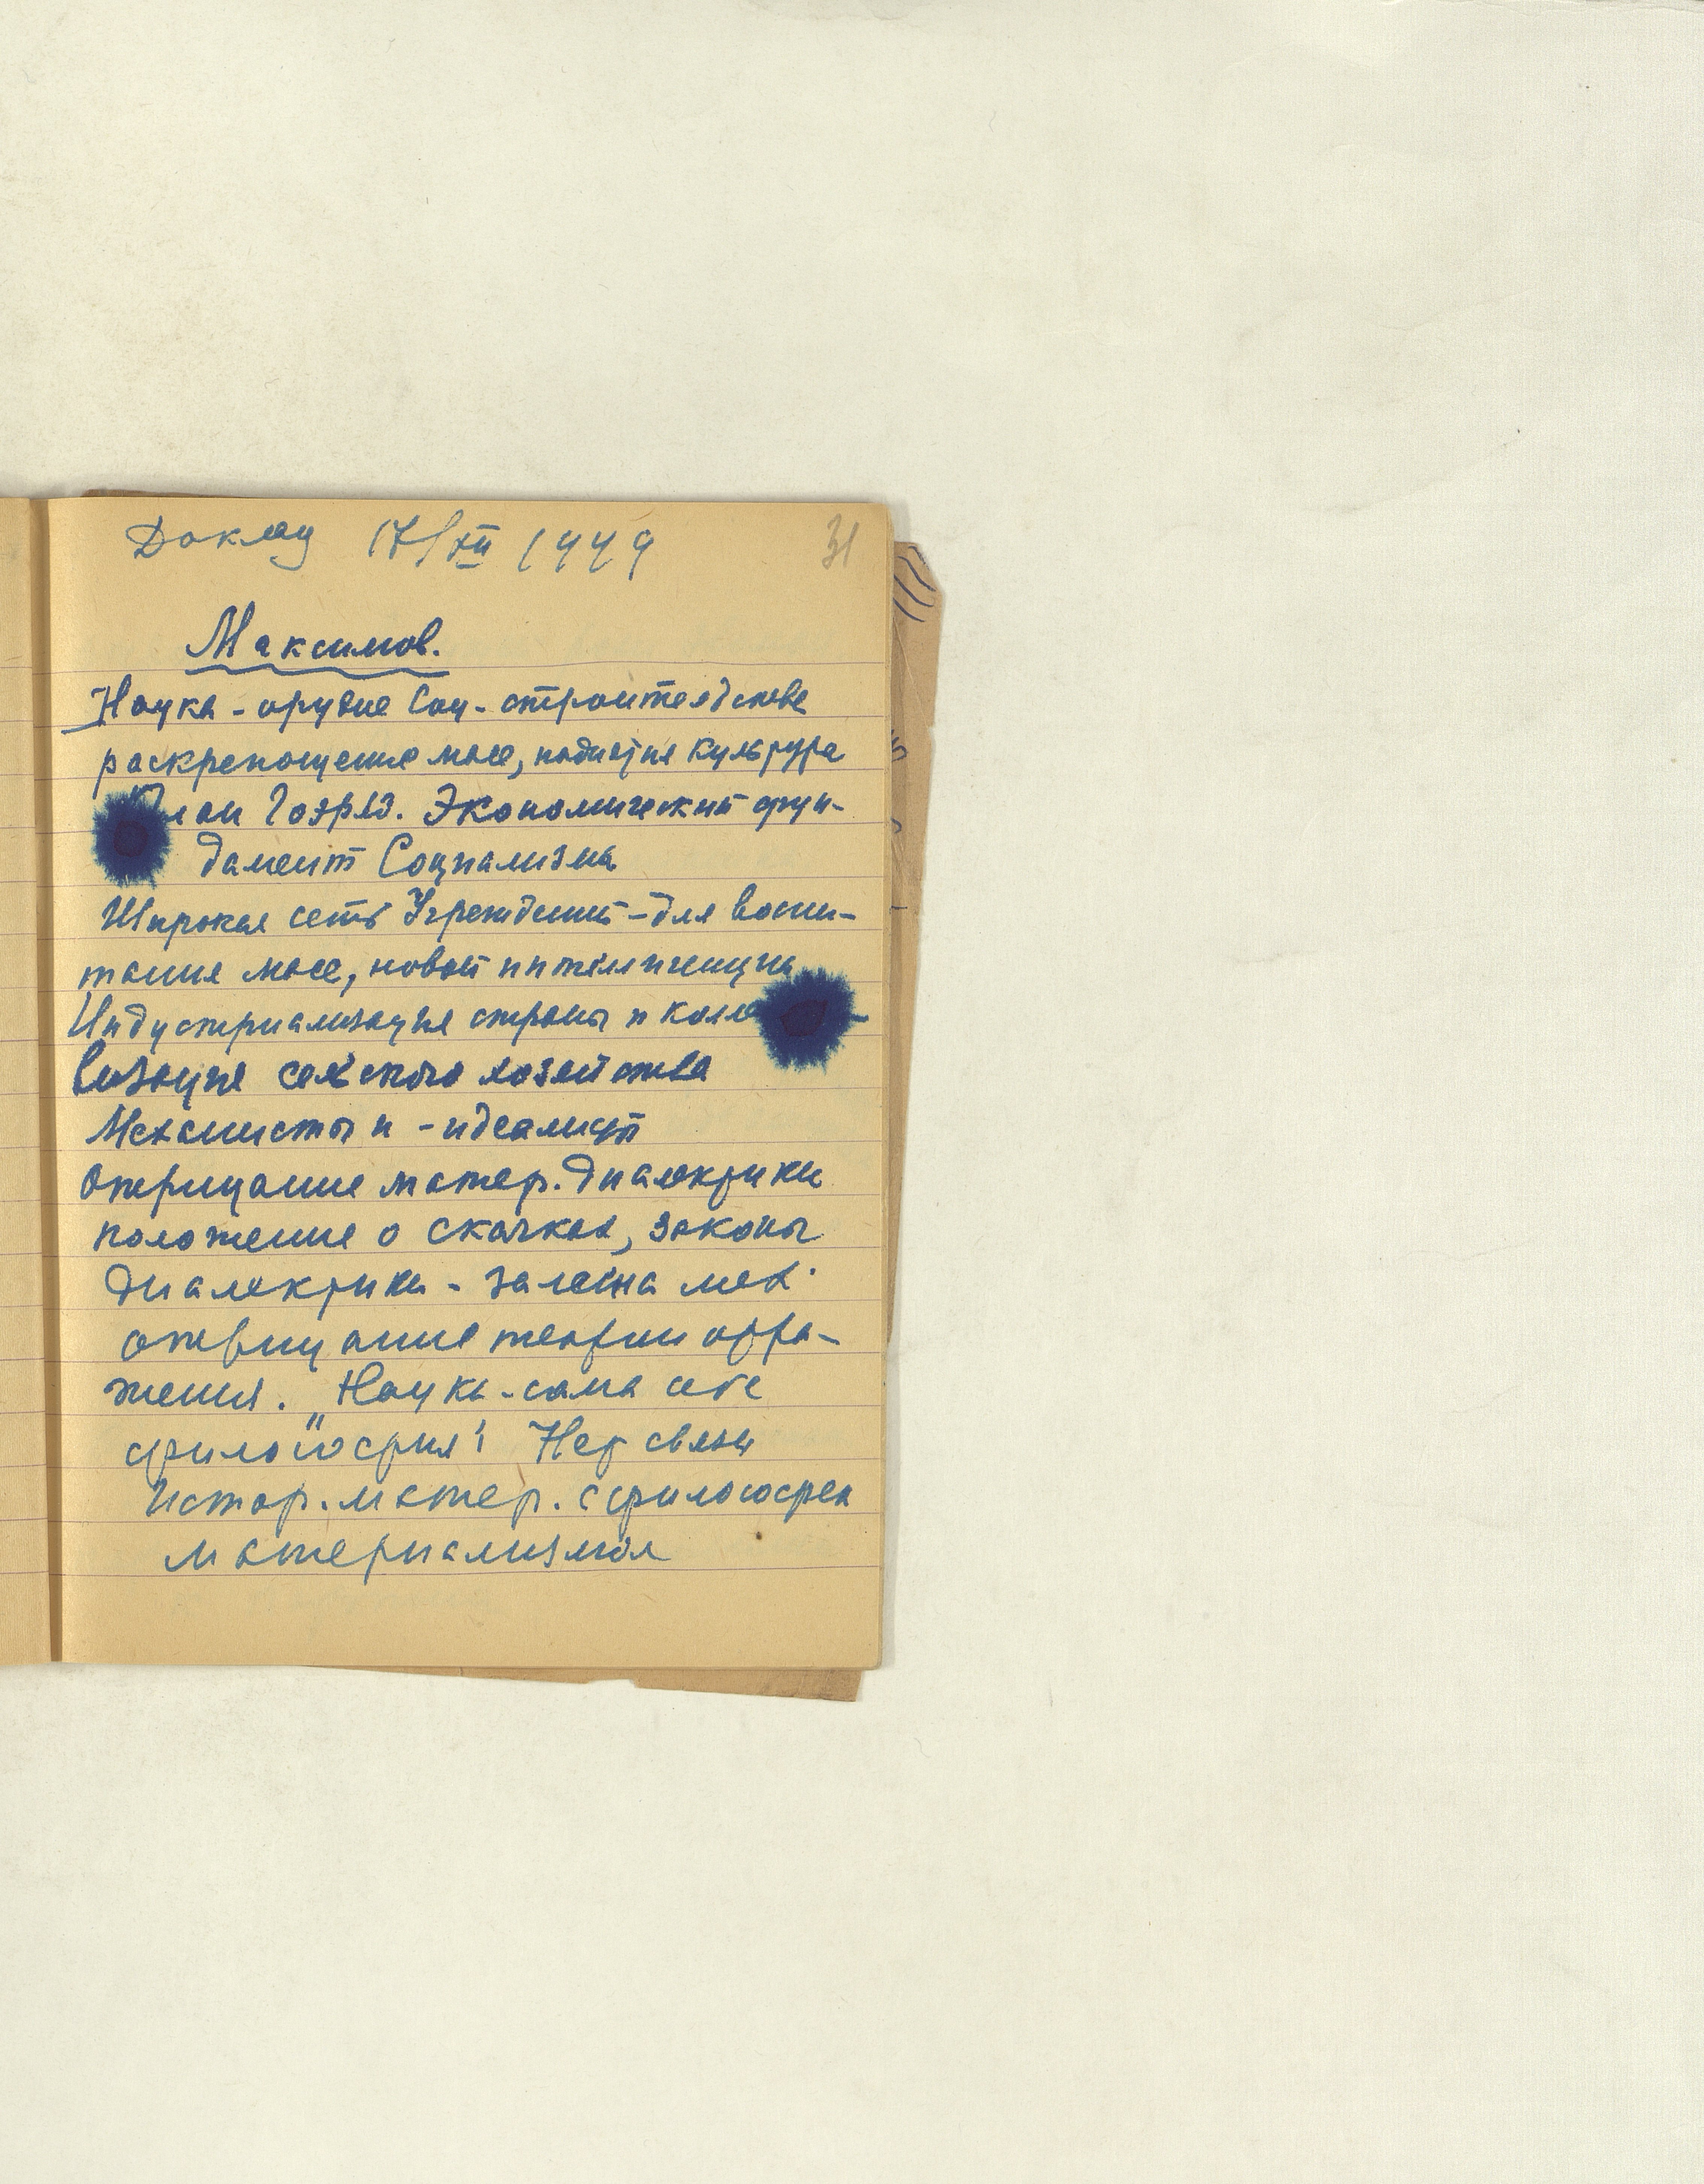 Доклад 17/XII 1949
31
Максимов.
Наука - орудие Соц- строительства
раскрепощение масс, поднятия культура
План Гоэрлэ. Экономический фун-
дамент Социализма
Широкая сеть Учреждений - для воспи-
тания масс, новой интеллигенции
Индустриализация страны и колле
визация сельского хозяйства
Механисты и - идеалисты
Отрицание матер. диалектики
положение о скачках, законы
Диалектики - замена мех.
отрицание теории отра-
жения. „Наука - сама себе
философия" Нет связи
Истор. матер. с философск
материализмом